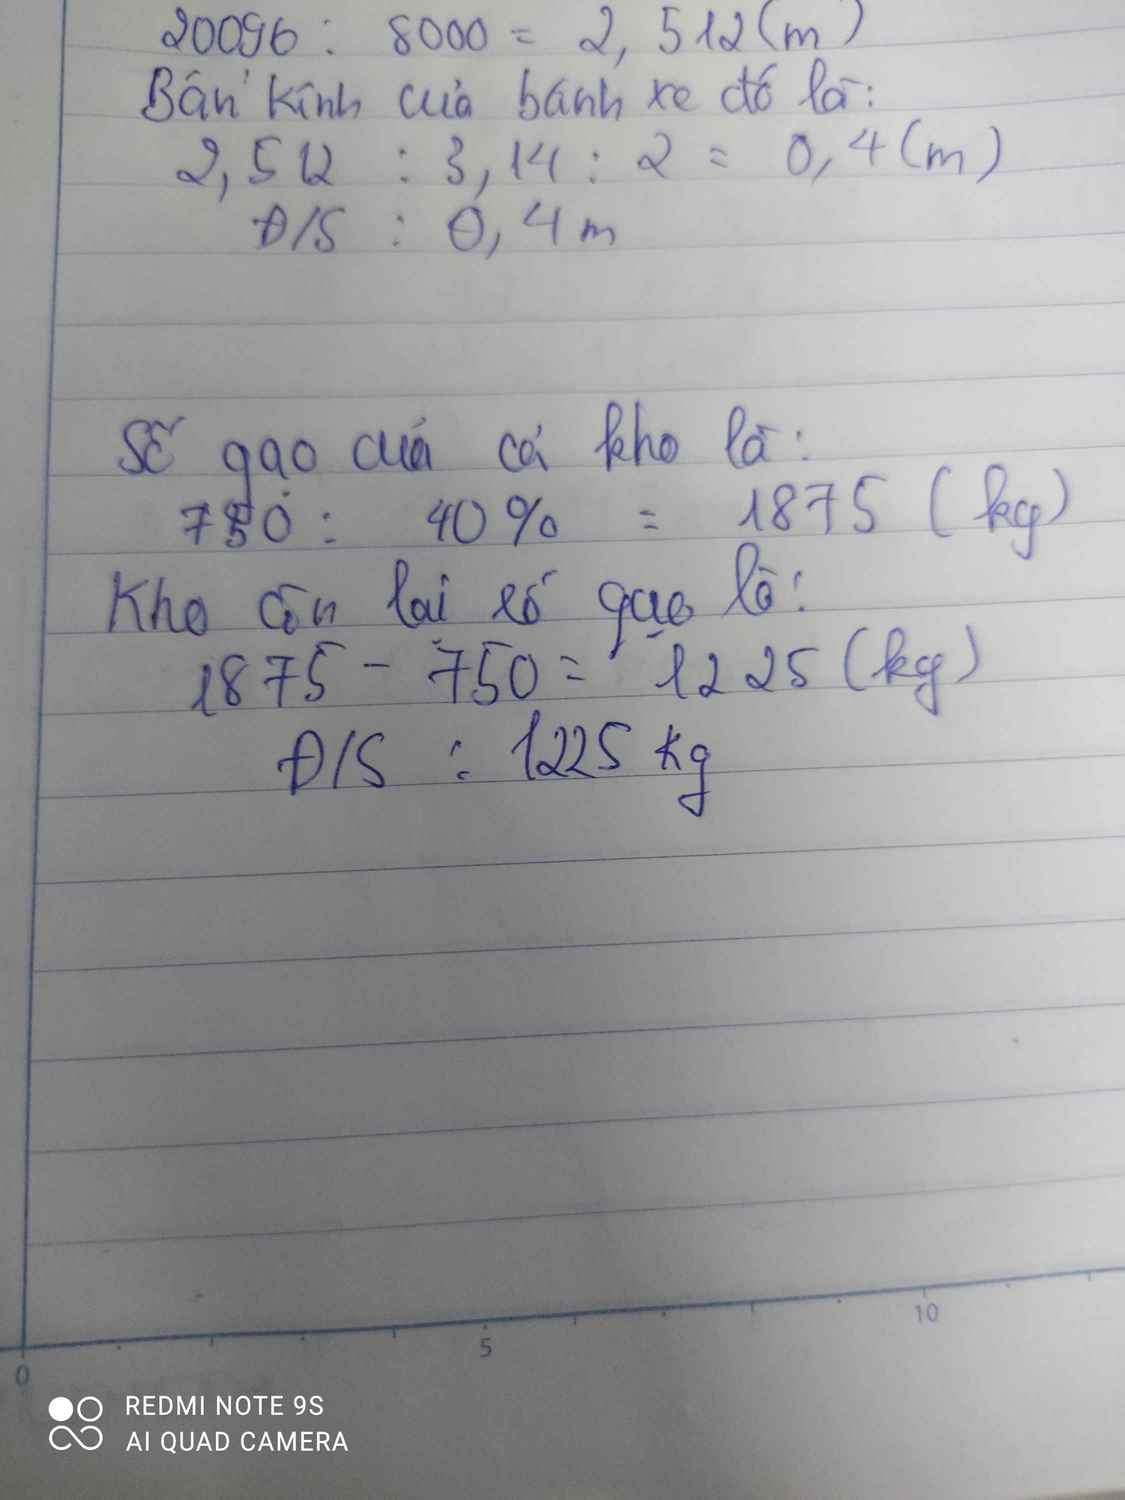 20096 : 8000 = 2, 512 (m)
Bán kính của bánh xe đó là:
2,512 : 3,14 : 2 = 0,4 (m)
Đ/S : 0,4 m
Số gạo của cả kho là:
750 : 40% = 1875 (kg)
Kho còn lại số gạo là:
1875 - 750 = 1225 (kg)
Đ/S : 1225 kg
0 5 10
REDMI NOTE 9S
AI QUAD CAMERA